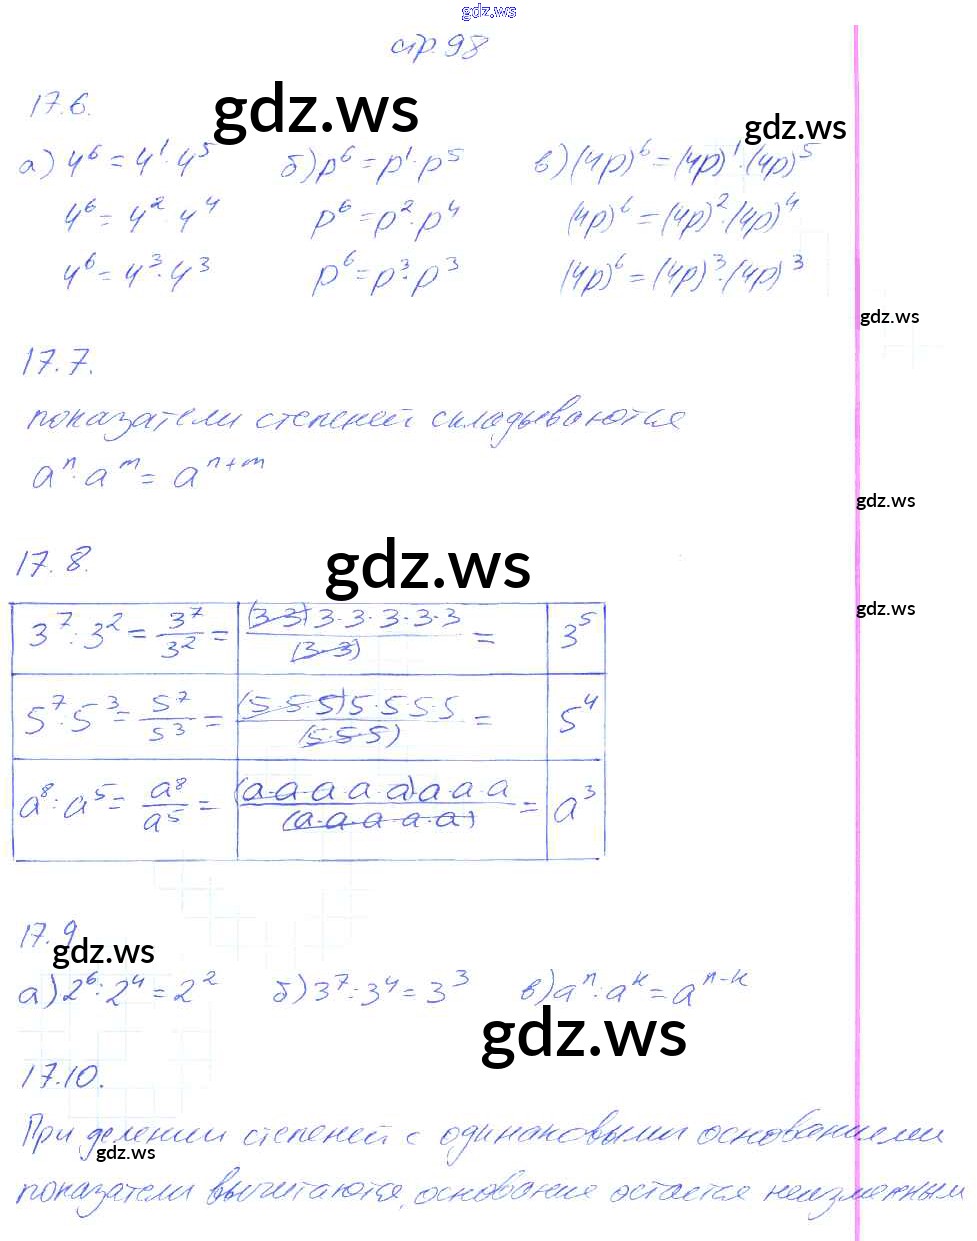 gdz.ws
стр. 98
17.6.
gdz.ws
gdz.ws
а) 4⁶ = 4¹ · 4⁵ б) p⁶ = p¹ · p⁵ в) (4p)⁶ = (4p)¹ · (4p)⁵
4⁶ = 4² · 4⁴ p⁶ = p² · p⁴ (4p)⁶ = (4p)² · (4p)⁴
4⁶ = 4³ · 4³ p⁶ = p³ · p³ (4p)⁶ = (4p)³ · (4p)³
gdz.ws
17.7.
показатели степеней складываются
aⁿ · aᵐ = aⁿ⁺ᵐ
gdz.ws
17.8.
gdz.ws
gdz.ws
3⁷ : 3² = 3⁷/3² = (3·3)3·3·3·3·3/(3·3) = 3⁵
5⁷ : 5³ = 5⁷/5³ = (5·5·5)5·5·5·5/(5·5·5) = 5⁴
a⁸ : a⁵ = a⁸/a⁵ = (a·a·a·a·a)a·a·a/(a·a·a·a·a) = a³
17.9
gdz.ws
а) 2⁶ : 2⁴ = 2² б) 3⁷ : 3⁴ = 3³ в) aⁿ : aᵏ = aⁿ⁻ᵏ
gdz.ws
17.10.
При делении степеней с одинаковыми основаниями
gdz.ws
показатели вычитаются, основание остается неизменным